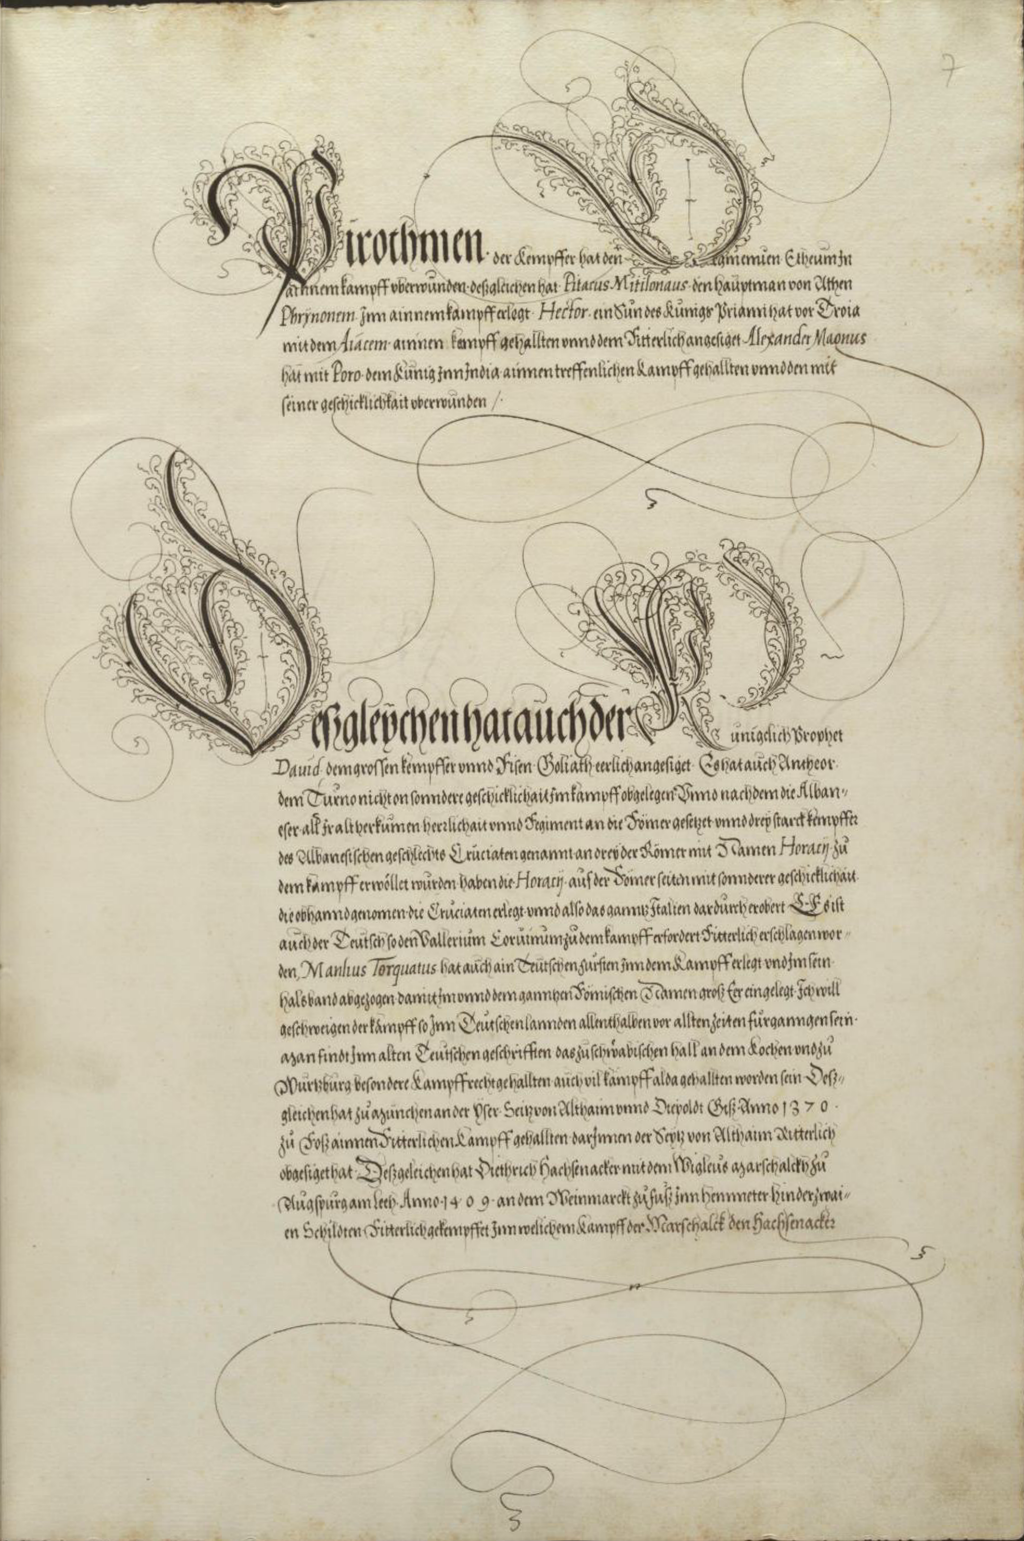 7
Pirothmen. der Kempffer hat den
ainnem kampff vberwunden. deßgleichen hat Pitacus Mitilonaus den haŭptman von Athen
Phrynonem. Jnn ainnem kampff erlegt. Hector. ein Sŭn des Kŭnigs Priami hat vor Troia
mit dem Aiacem. ainnen kempff gehallten vnnd dem Ritterlich angesiget Alexander Magnus
hat mit Poro. dem Kŭnig Jnn India ainnen treffenlichen Kampff gehallten vnnd den mit
seiner geschicklichkait vberwunden /.
Deßgleÿchen hat aŭch der Kŭniglich Prophet
David, dem grossen kempffer vnnd Risen. Goliath eerlich angesiget. Es hat aŭch Antheor.
dem Tŭrno nicht on sonndere geschicklichait Jm kampff obgelegen. Vnnd nach dem die Alban=
eser all Jr alt herkumen herrlichait vnnd Regiment an die Römer gesetzet vnnd dreÿ starck kempffer
des Albanesischen geschlechts Crŭciaten genannt an dreÿ der Römer mit Namen Horacÿ Zŭ
dem kampff erwöllet wŭrden haben die Horacÿ. aŭs der Römer seiten mit sonnderer geschicklichait
die obhannd genomen die Crŭciaten erlegt. vnnd also das ganntz Italien dardŭrch erobert Es ist
aŭch der Teŭtsch so den Vallerium Corŭinŭm zŭ dem kampff erfordert Ritterlich erschlagen wor=
den, Manlius Torquatus hat aŭch ain Teŭtschen Fŭrsten Jnn dem Kampff erlegt vnd Jm sein
halsband abgezogen damit Jm vnnd dem ganntzen Römischen Namen groß Eer eingelegt. Ich will
geschweigen der kämpff so Jnn Teŭtschen lannden allenthalben vor allten Zeiten fŭrganngen sein.
Man findt Jnn alten Teŭtschen geschrifften das zŭ schwäbischen hall an dem Kochen vnd zŭ
Wŭrtzbŭrg besondere Kampffrecht gehallten aŭch vil kämpff alda gehallten worden sein. Deß=
gleichen hat zŭ Mŭnchen an der Yser. Seitz von Althaim vnnd Diepoldt Giß. Anno 1370.
zŭ Roß ainnen Ritterlichen Kampff gehallten. dar Jnnen der Seytz von Althaim Ritterlich
obgesiget hat. Deßgeleichen hat Diethrich Hachsenacker mit dem Wigleŭs Marschalckh zŭ
Aŭgspŭrg am Lech. Anno. 1409. an dem Weinmarckt zŭ fŭß Jnn hemmeter hinder zwai=
en Schildten Ritterlich gekempffet Jnn welichem Kampff der Marschalck den Hachsenacker